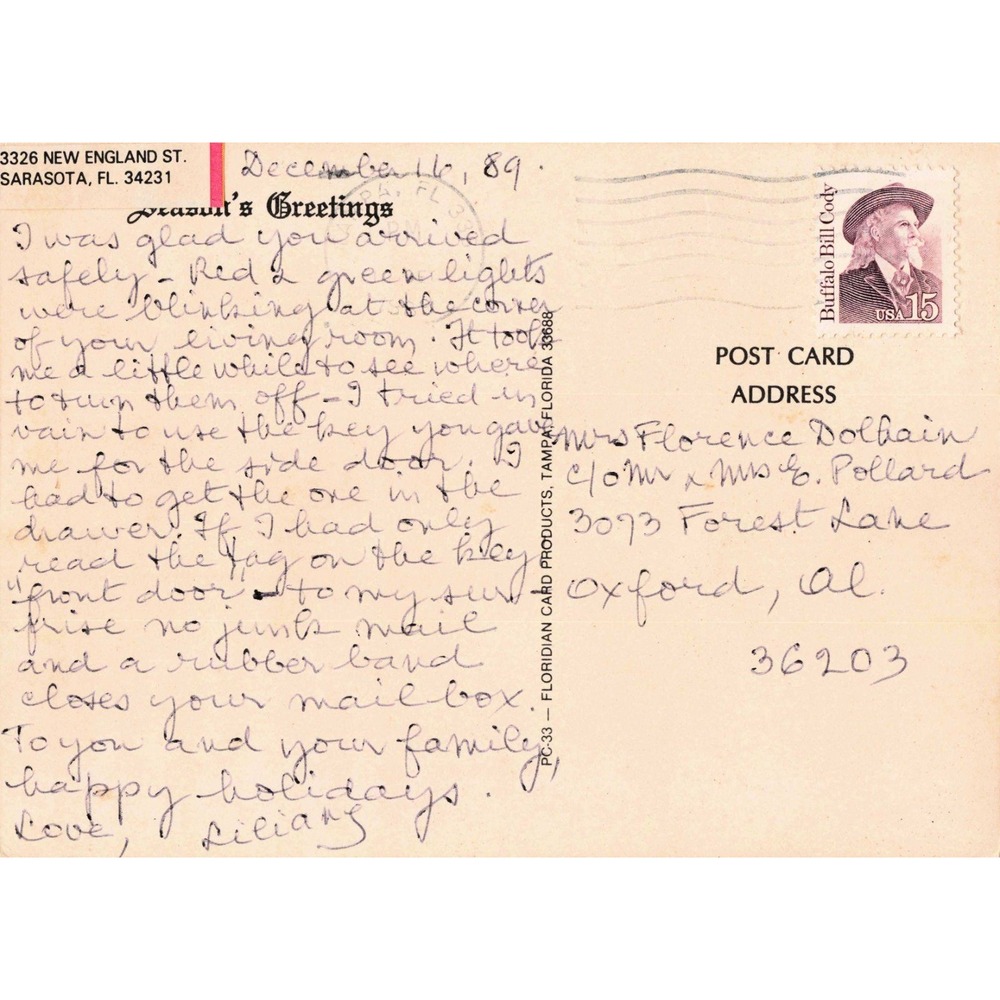 3326 NEW ENGLAND ST.
SARASOTA, FL. 34231
December 16, 89.
Season's Greetings
I was glad you arrived
safely – Red & green lights
were blinking at the corner
of your living room. It took
me a little while to see where
to turn them off – I tried in
vain to use the key you gave
me for the side door. I
had to get the one in the
drawer. If I had only
read the tag on the key
"front door" – to my sur-
prise no junk mail
and a rubber band
closes your mail box.
To you and your family,
happy holidays.
Love, Liliane
PC-33 — FLORIDIAN CARD PRODUCTS, TAMPA, FLORIDA 33688
Buffalo Bill Cody
USA 15
POST CARD
ADDRESS
Mrs Florence Dolhain
c/o Mr & Mrs E. Pollard
3073 Forest Lane
Oxford, Al.
36203